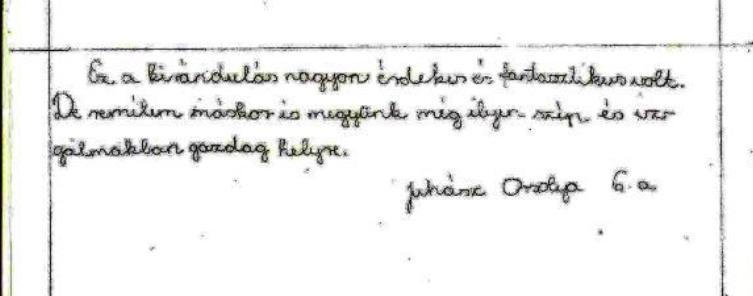 Ez a kirándulás nagyon érdekes és fantasztikus volt.
De remélem máskor is megyünk még ilyen szép és iz-
galmakban gazdag helyre.
Juhász Orsolya 6. a